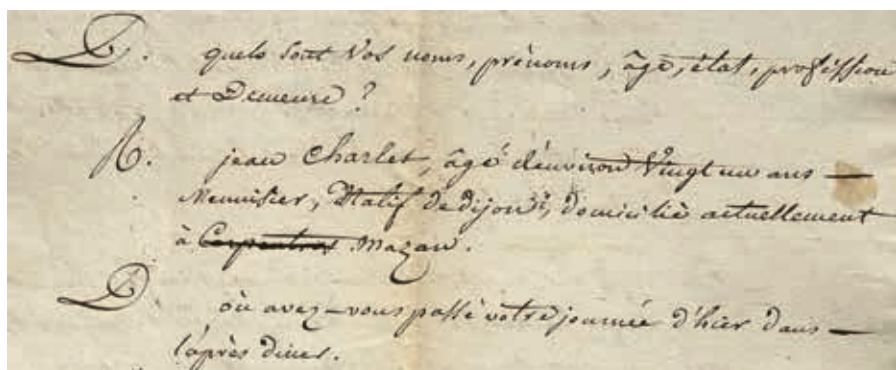 D. quels sont Vos noms, prénoms, âge, état, profession
et Demeure ?
R. jean Charlet, âgé d'environ Vingt un ans —
Menuisier, Natif de dijon, domicilié actuellement
à Carpentras Mazan.
D où avez-vous passé votre journée d'hier dans —
l'après diner.